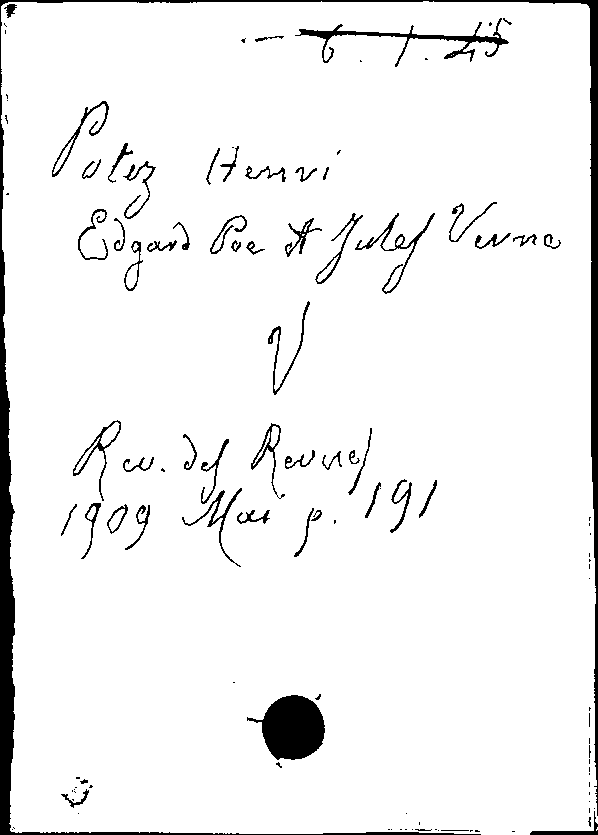 6.1.45
Potez Henri
Edgard Poe et Jules Verne
V
Rev. des Revues
1909 Mai p. 191